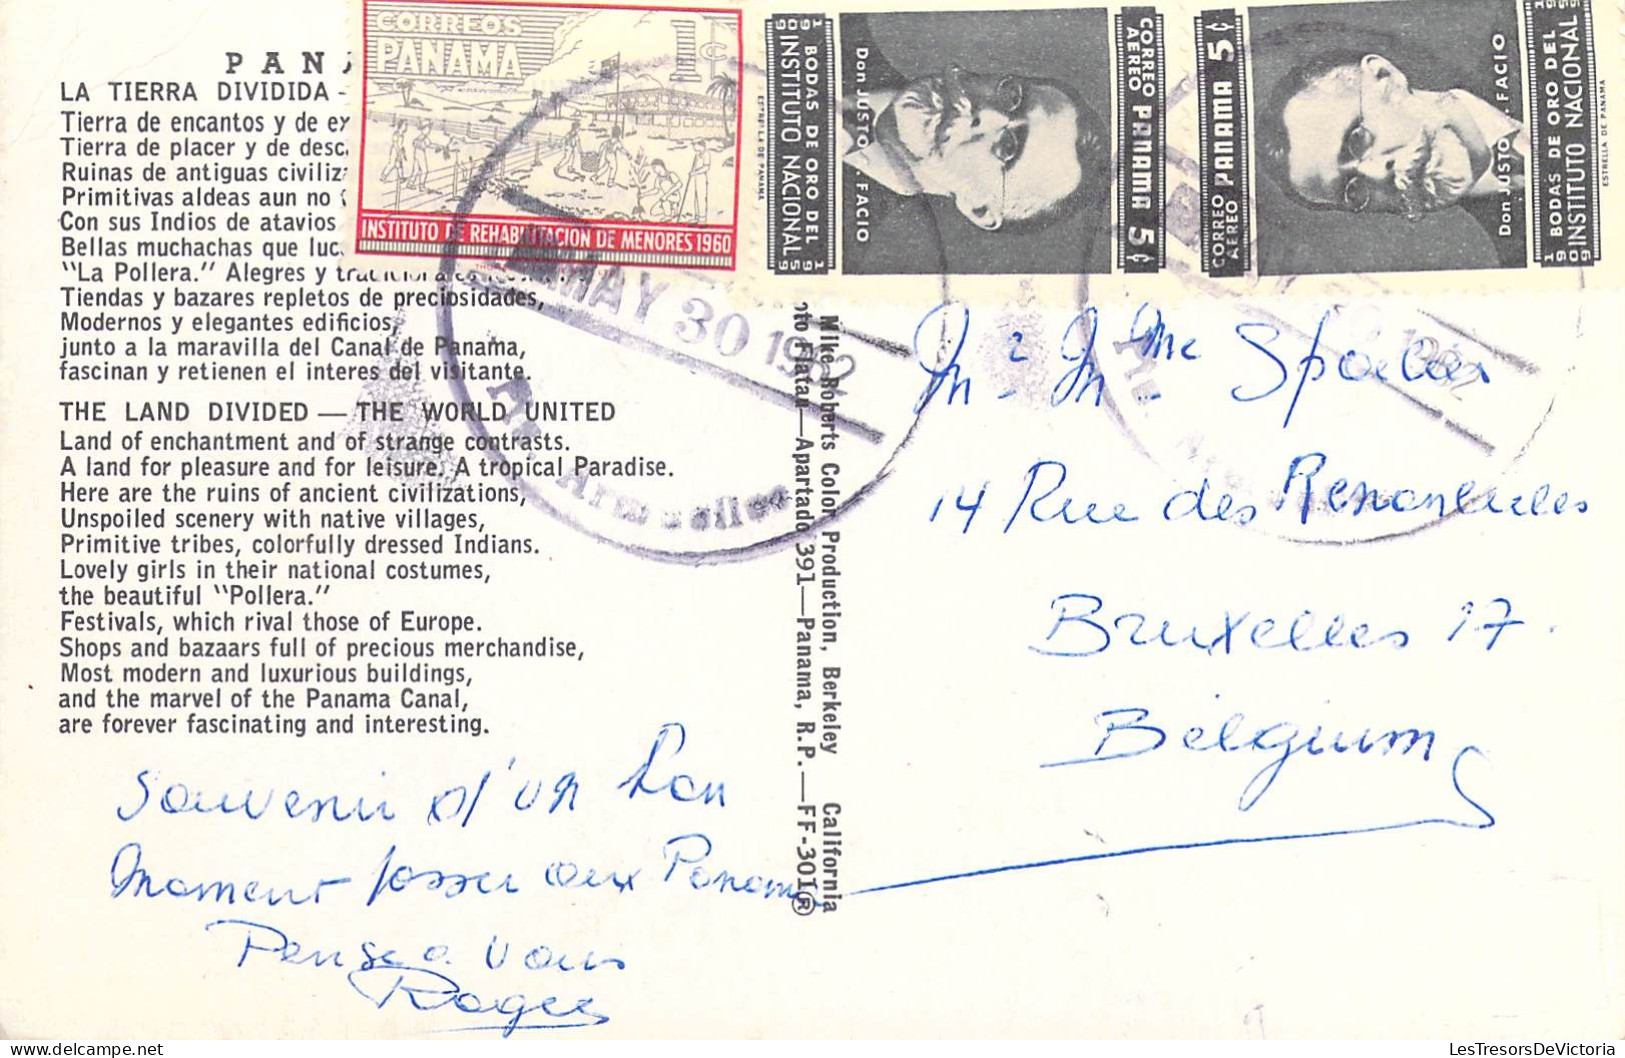 PANA
LA TIERRA DIVIDIDA -
Tierra de encantos y de ex
Tierra de placer y de desc
Ruinas de antiguas civiliz
Primitivas aldeas aun no
Con sus Indios de atavios
Bellas muchachas que luc
"La Pollera." Alegres y
Tiendas y bazares repletos de preciosidades,
Modernos y elegantes edificios,
junto a la maravilla del Canal de Panama,
fascinan y retienen el interes del visitante.
THE LAND DIVIDED — THE WORLD UNITED
Land of enchantment and of strange contrasts.
A land for pleasure and for leisure. A tropical Paradise.
Here are the ruins of ancient civilizations,
Unspoiled scenery with native villages,
Primitive tribes, colorfully dressed Indians.
Lovely girls in their national costumes,
the beautiful "Pollera."
Festivals, which rival those of Europe.
Shops and bazaars full of precious merchandise,
Most modern and luxurious buildings,
and the marvel of the Panama Canal,
are forever fascinating and interesting.
souvenir d'un bon
moment passer aux Panama
Pense a vous
Roger
CORREOS
PANAMA
1¢
INSTITUTO DE REHABILITACION DE MENORES 1960
1909 BODAS DE ORO DEL 1959
INSTITUTO NACIONAL
ESTRELLA DE PANAMA
Don JUSTO A. FACIO
CORREO AEREO PANAMA 5¢
CORREO AEREO PANAMA 5¢
Don JUSTO A. FACIO
1909 BODAS DE ORO DEL 1959
INSTITUTO NACIONAL
ESTRELLA DE PANAMA
MAY 30 1962
Pto. Armuelles
Mike Roberts Color Production, Berkeley California
Foto Flatau—Apartado 391—Panama, R.P.—FF-301 ®
Mr Mme
14 Rue des Renoncules
Bruxelles 17.
Belgium
LesTresorsDeVictoria